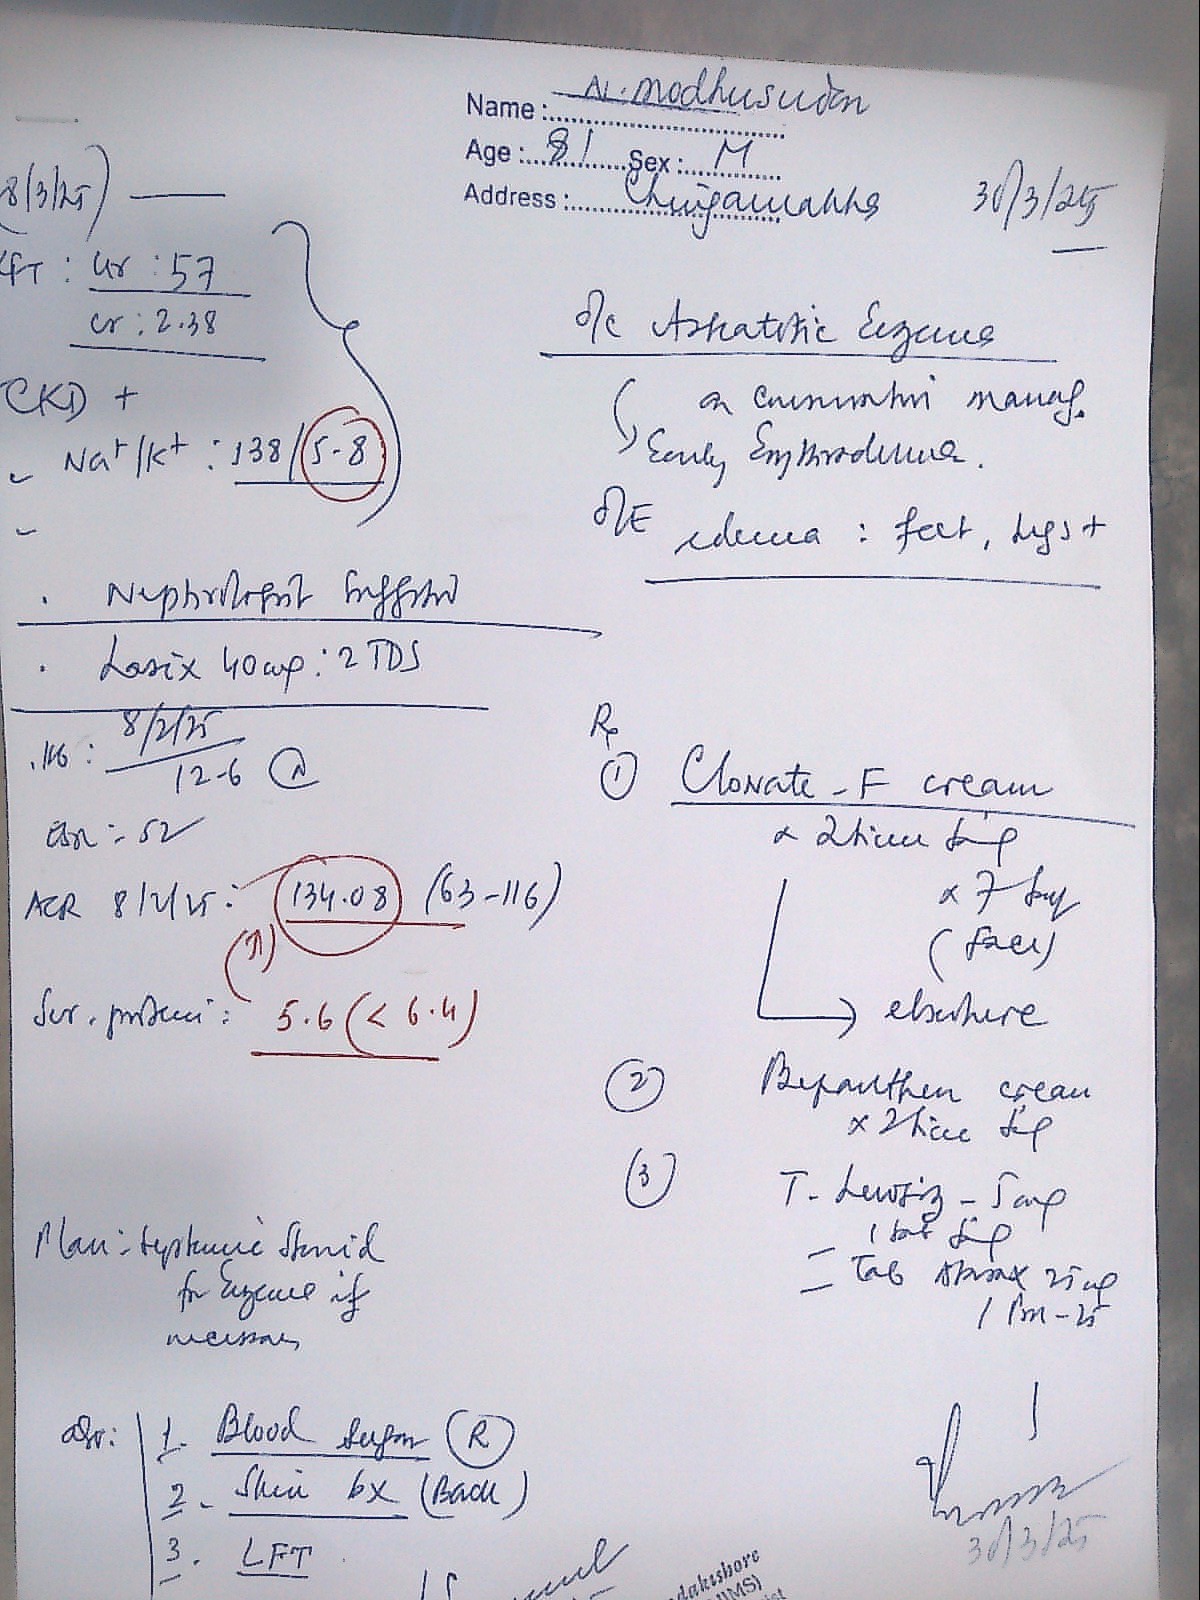 Name : N. Modhusudan
Age : 81 Sex : M
Address : Chingamakha
30/3/25
8/3/25)
KFT : Ur : 57
cr : 2.38
CKD +
Na+/K+ : 138/5.8
Nephrologist
Lasix 40mg : 2 TDS
Hb : 8/2/25
12.6 N
ESR : 52
ACR 8/2/25 : 134.08 (63-116)
(↑)
Ser. protein : 5.6 (< 6.4)
Plan : Systemic Steroid
for Eczema if
necessary
Adv: 1. Blood Sugar (R)
2. Skin bx (Back)
3. LFT
o/c Asteatotic Eczema
on manag.
Early Erythroderma.
O/E edema : feet, legs +
Rx
1 Clonate-F cream
x 2 times
x 7 day
(face)
elsewhere
2 Bepanthen cream
x 2 time
3 T- 5mg
1 tab
Tab Atarax 25mg
1
30/3/25
dakishore
IMS)